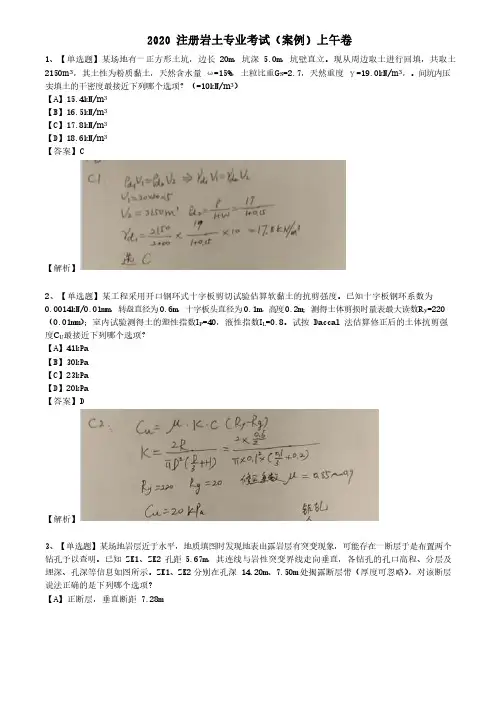 2020 注册岩土专业考试（案例）上午卷
1、【单选题】某场地有一正方形土坑，边长 20m，坑深 5.0m，坑壁直立。现从周边取土进行回填，共取土
2150m³，其土性为粉质黏土，天然含水量 ω=15%，土粒比重Gs=2.7，天然重度 γ=19.0kN/m³，。问坑内压
实填土的干密度最接近下列哪个选项？（=10kN/m³）
【A】15.4kN/m³
【B】16.5kN/m³
【C】17.8kN/m³
【D】18.6kN/m³
【答案】C
C1
V2=2150m³
选 C
【解析】
2、【单选题】某工程采用开口钢环式十字板剪切试验估算软黏土的抗剪强度。已知十字板钢环系数为
0.0014kN/0.01mm，转盘直径为0.6m，十字板头直径为0.1m，高度0.2m；测得土体剪损时量表最大读数Ry=220
（0.01mm）；室内试验测得土的塑性指数Ip=40，液性指数IL=0.8。试按 Daccal 法估算修正后的土体抗剪强
度Cu最接近下列哪个选项？
【A】41kPa
【B】30kPa
【C】23kPa
【D】20kPa
【答案】D
C2. Cu = μ·K·C (Ry-Rg)
Ry=220 Rg=20 修正系数 μ=0.85~0.9
Cu=20 kPa
【解析】
3、【单选题】某场地岩层近于水平，地质填图时发现地表出露岩层有突变现象，可能存在一断层于是布置两个
钻孔予以查明。已知 ZK1、ZK2 孔距 5.67m，其连线与岩性突变界线走向垂直，各钻孔的孔口高程、分层及
埋深、孔深等信息如图所示。ZK1、ZK2 分别在孔深 14.20m、7.50m 处揭露断层带（厚度可忽略），对该断层
说法正确的是下列哪个选项？
【A】正断层，垂直断距 7.28m